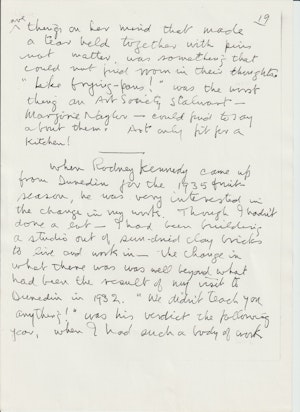 19
are
things on her mind that made
a tear held together with pins
not matter, was something that
could not find room in their thoughts.
"Like frying-pans!" was the worst
thing an Art Society Stalwart —
Marjorie Naylor — could find to say
about them. Art only fit for a
Kitchen!
When Rodney Kennedy came up
from Dunedin for the 1935 fruit
season, he was very interested in
the change in my work. Though I hadn't
done a lot — I had been building
a studio out of sun-dried clay bricks
to live and work in — the change in
what there was was well beyond what
had been the result of my visit to
Dunedin in 1932. "We didn't teach you
anything!" was his verdict the following
year, when I had such a body of work